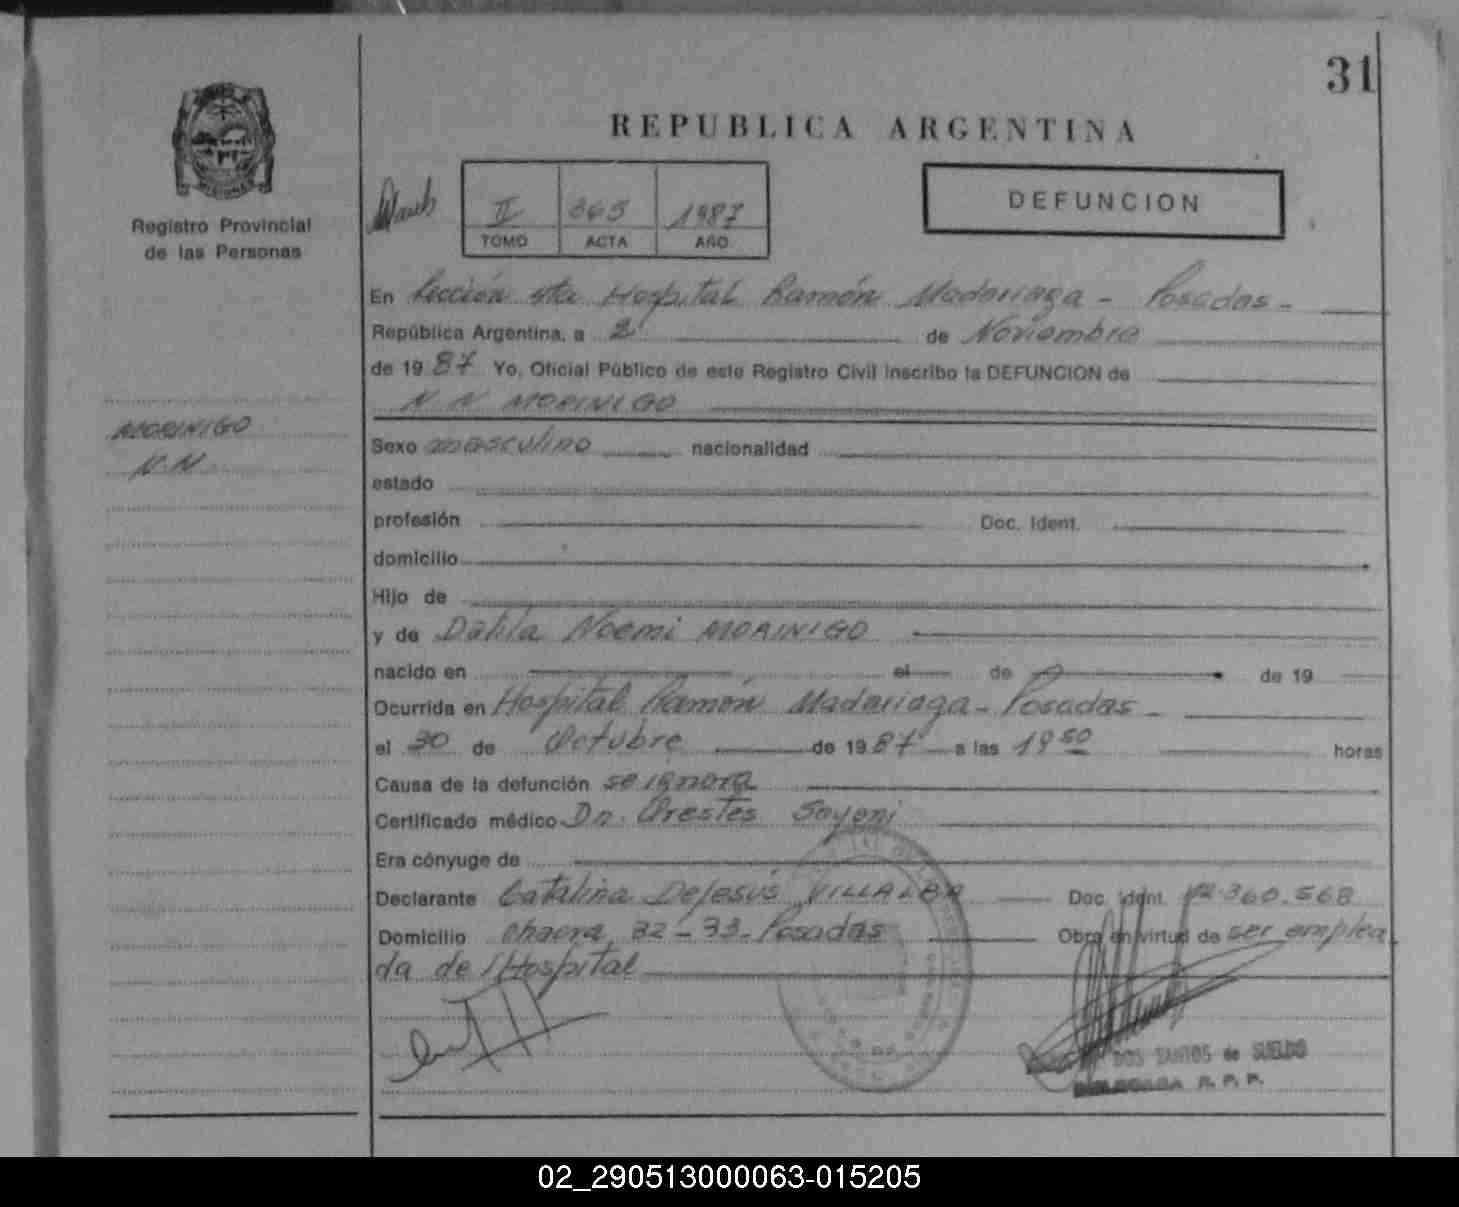 31
REPUBLICA ARGENTINA
DEFUNCION
II 365 1987
TOMO ACTA AÑO
Registro Provincial
de las Personas
MORINIGO
N.N.
En Sección 4ta Hospital Ramón Madariaga - Posadas -
República Argentina, a 2 de Noviembre
de 1987 Yo, Oficial Público de este Registro Civil inscribo la DEFUNCION de
N N MORINIGO
Sexo masculino nacionalidad
estado
profesión Doc. Ident.
domicilio
Hijo de
y de Dalila Noemi MORINIGO
nacido en el de de 19
Ocurrida en Hospital Ramón Madariaga - Posadas -
el 30 de Octubre de 1987 a las 19 50 horas
Causa de la defunción se ignora
Certificado médico Dr. Orestes
Era cónyuge de
Declarante Catalina DeJesús VILLALBA Doc. Ident. 12.360.568
Domicilio Chacra 32-33- Posadas Obra en virtud de ser emplea
da del Hospital
DOS SANTOS de SUELDO
DELEGADA R. P. P.
02_290513000063-015205